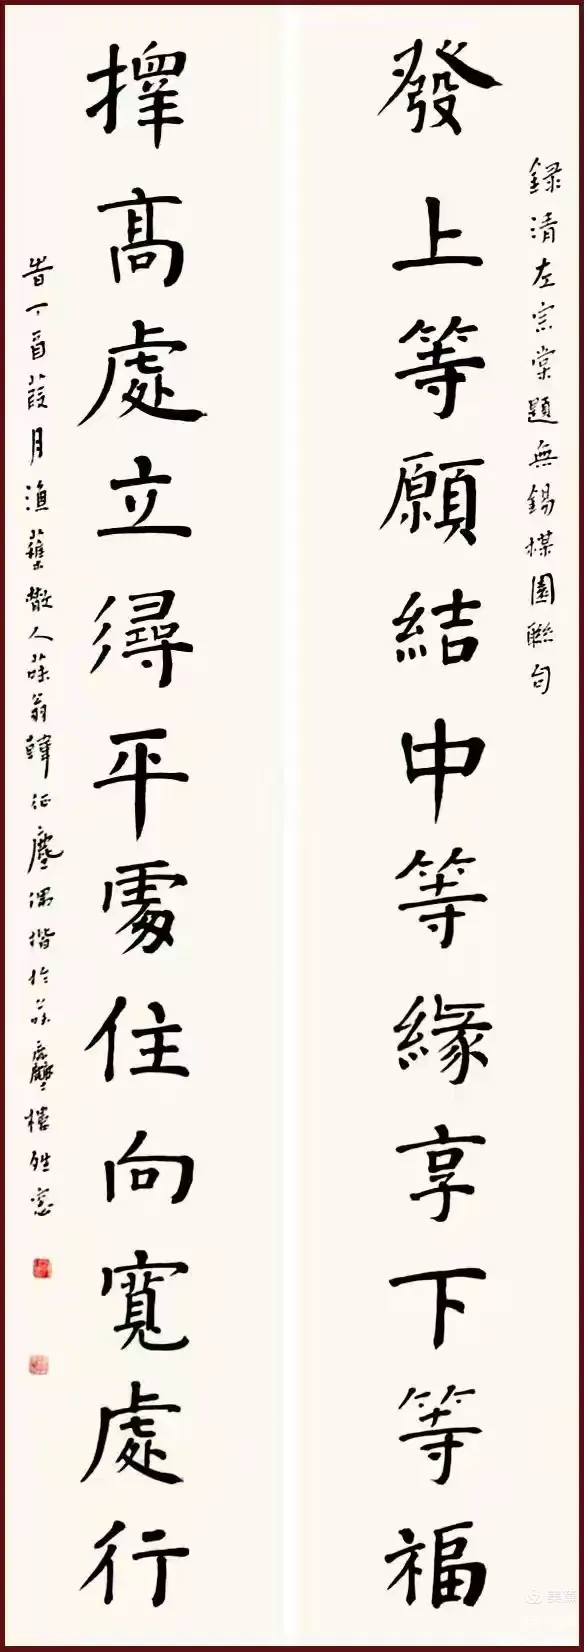 録清左宗棠題無錫楳園聯句
發上等願結中等緣享下等福
擇高處立尋平處住向寬處行
旹丁酉葭月漁散人翁韓征塵偶於樓
美篇